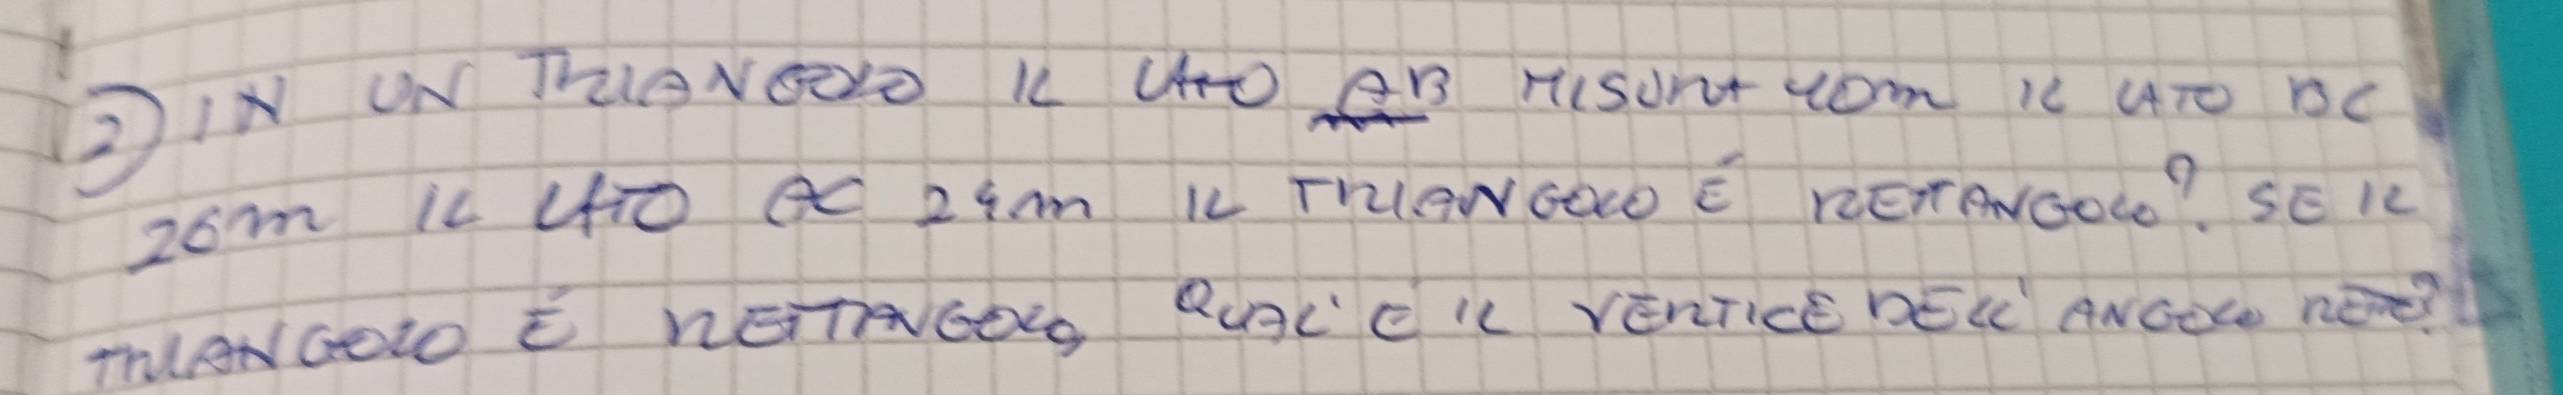 2) IN UN TRIANGOLO IL LATO AB MISURA 10m IL LATO BC
26m IL LATO AC 24m IL TRIANGOLO É RETTANGOLO?. SE IL
TRIANGOLO É RETTANGOLO, QUAL'E IL VERTICE DELL'ANGOLO RETTO?